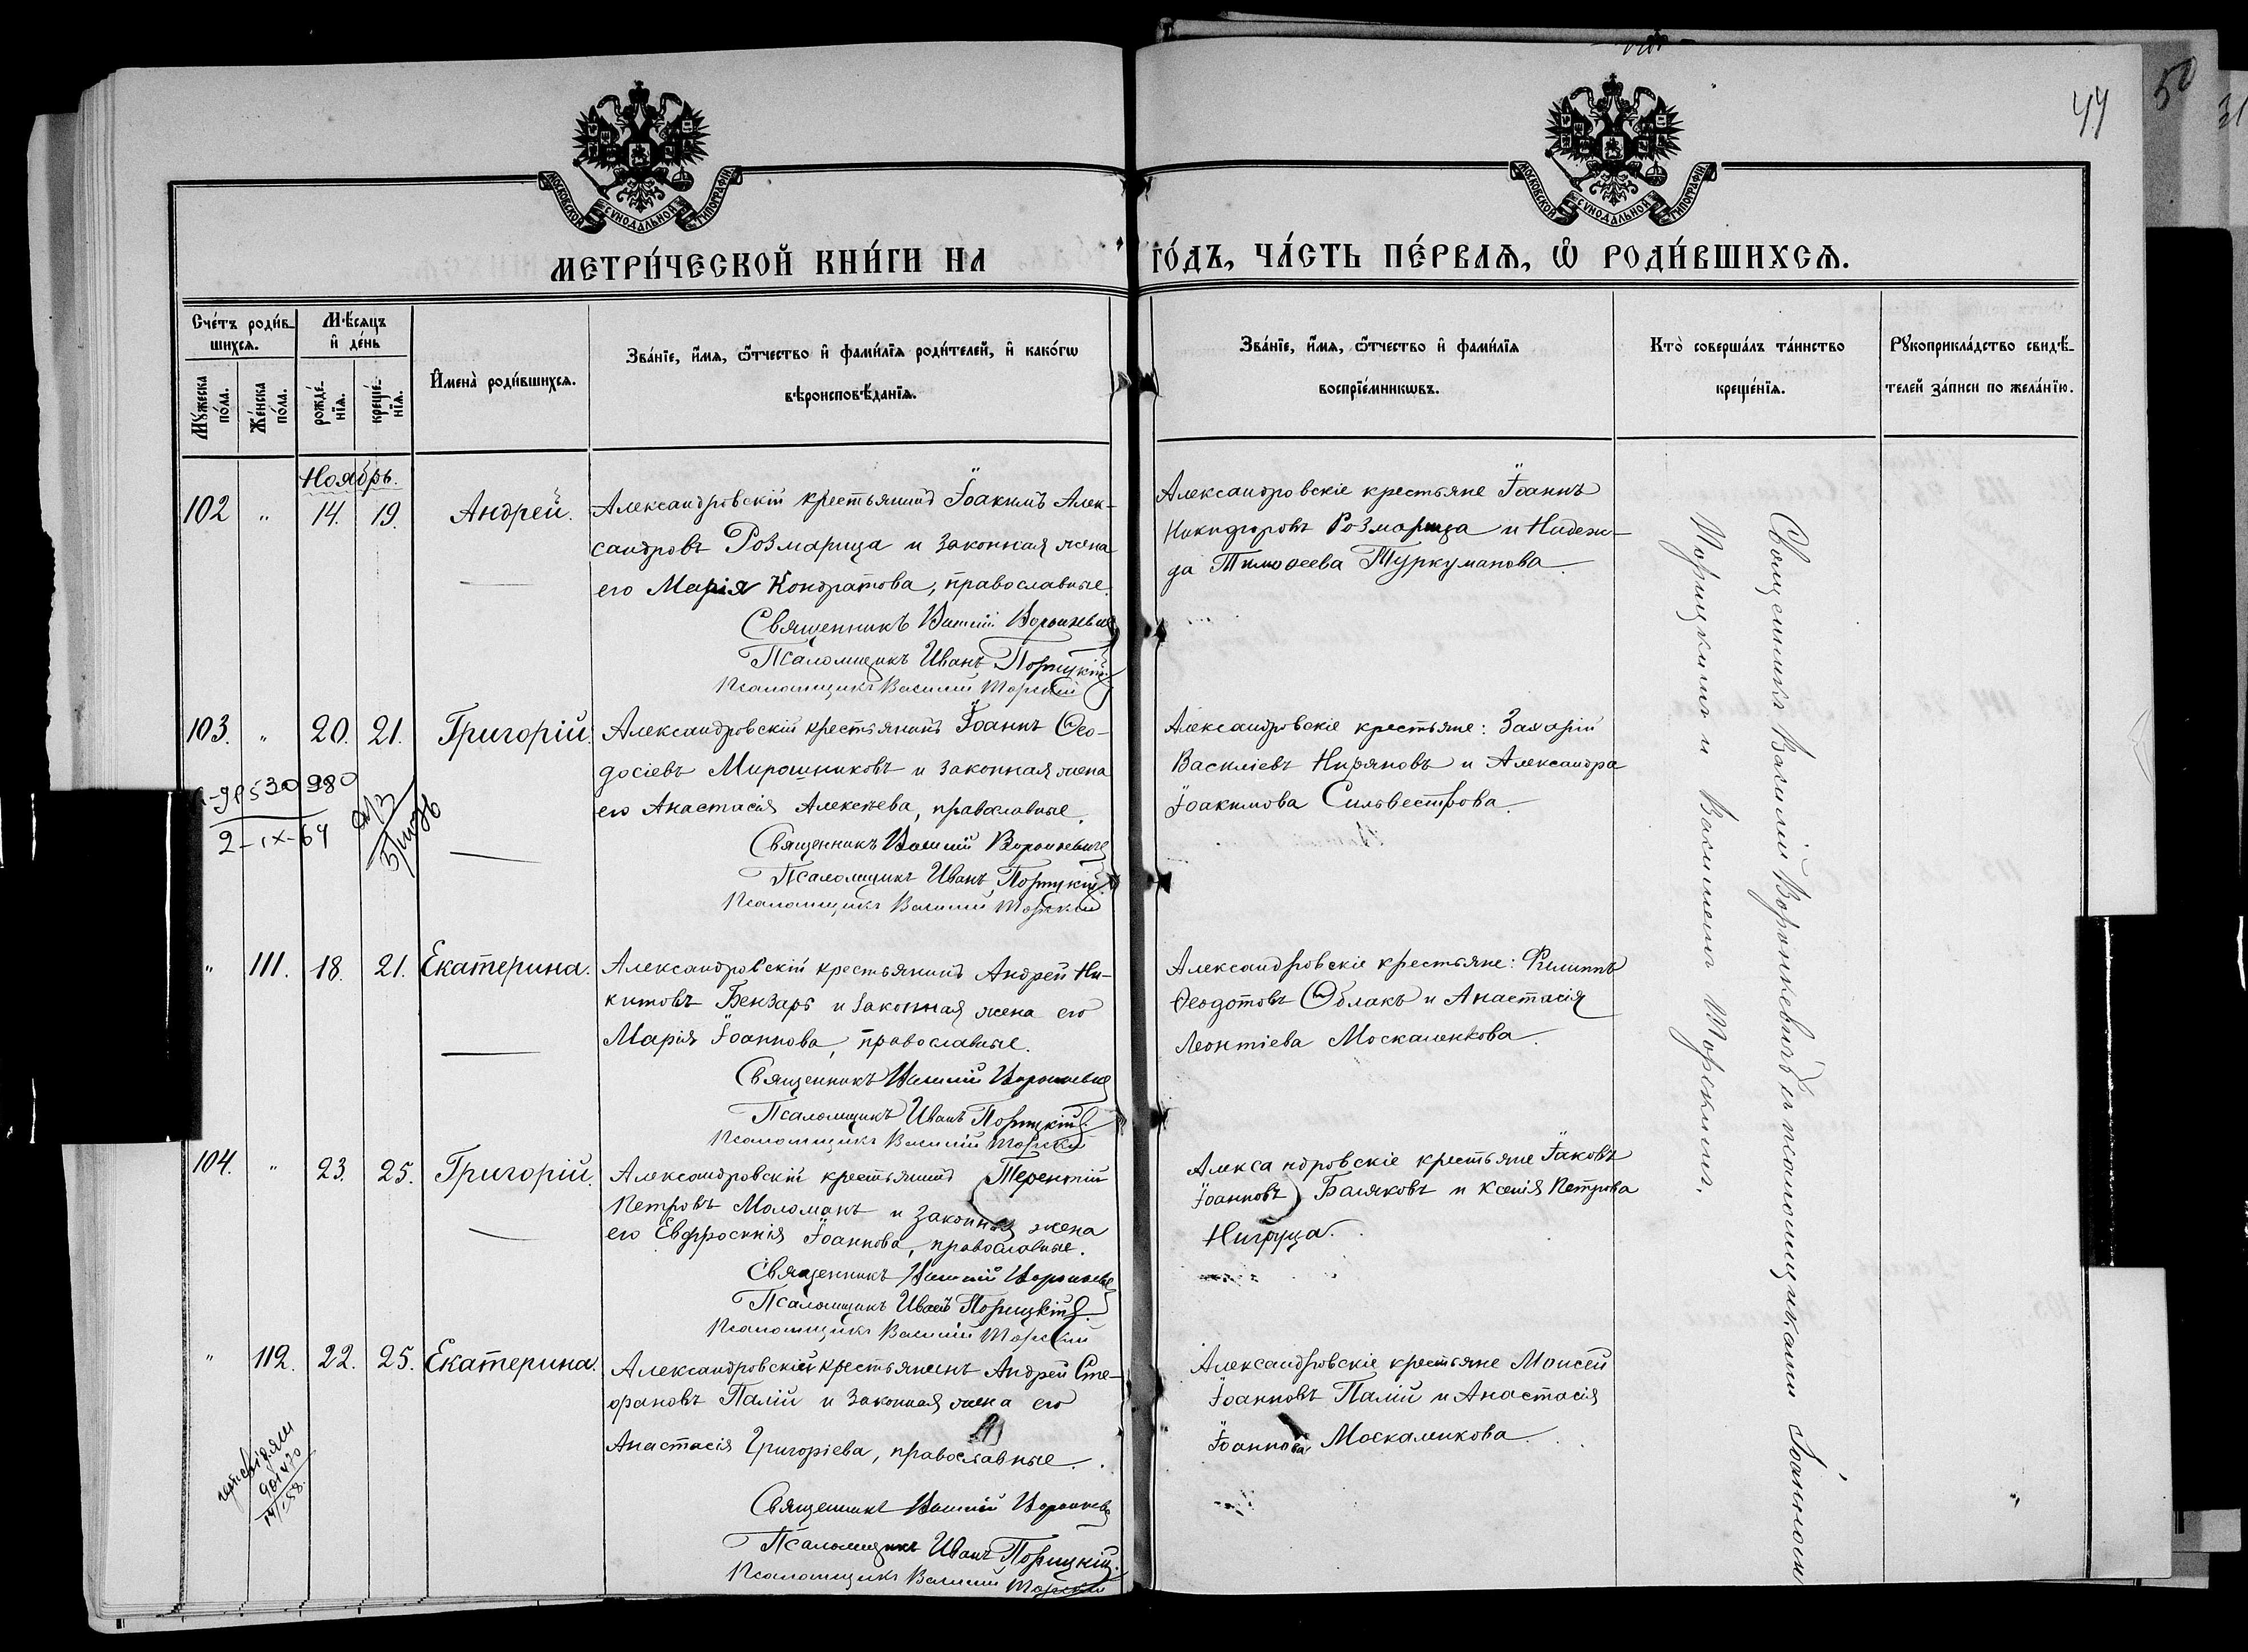 44
50
31
МОСКОВСКОЙ СѴНОДАЛЬНОЙ ТИПОГРАФІИ
МОСКОВСКОЙ СѴНОДАЛЬНОЙ ТИПОГРАФІИ
МЕТРИ́ЧЕСКОЙ КНИ́ГИ НА
ГО́ДЪ, ЧА́СТЬ ПЕ́РВАѦ, Ѽ РОДИ́ВШИХСѦ.
Сче́тъ роди́в-
шихсѧ.
Мѣ́сѧцъ
и҆ де́нь
И҆мена̀ роди́вшихсѧ.
Зва́нїе, и҆́мѧ, ѻ҆́тчество и҆ фами́лїѧ роди́телей, и҆ како́гѡ
вѣроисповѣ́данїѧ.
Мꙋ́жеска
по́ла.
Же́нска
по́ла.
рожде́-
нїѧ.
креще́-
нїѧ.
Зва́нїе, и҆́мѧ, ѻ҆́тчество и҆ фами́лїѧ
воспрїе́мникѡвъ.
Кто̀ соверша́лъ та́инство
креще́нїѧ.
Рꙋкоприкла́дство свидѣ́-
телей за́писи по жела́нїю.
Ноябрь.
102 " 14. 19. Андрей.
Александровскій крестьянинъ Іоакимъ Алек-
сандровъ Розмарица и законная жена
его Марія Кондратова, православные.
Священникъ Василій Воронкевичъ
Псаломщикъ Иванъ Порицкій
Псаломщикъ Василій Торскій
Александровскіе крестьяне Іоаннъ
Никифоровъ Розмарица и Надеж-
да Тимоѳеева Туркуманова.
103. " 20. 21. Григорій.
Александровскій крестьянинъ Іоаннъ Ѳео-
досіевъ Мирошниковъ и законная жена
его Анастасія Алексѣева, православные.
Священникъ Василій Воронкевичъ
Псаломщикъ Иванъ Порицкій.
Псаломщикъ Василій Торскій
530980
2-IX-64
Александровскіе крестьяне: Захарій
ВасиліевъНиряновъ и Александра
Іоакимова Сильвестрова.
" 111. 18. 21. Екатерина.
Александровскій крестьянинъ Андрей Ни-
китовъ Бензарь и законная жена его
Марія Іоаннова, православные.
Священникъ Василій Воронкевичъ
Псаломщикъ Иванъ Порицкій.
Псаломщикъ Василій Торскій
Александровскіе крестьяне: Филиппъ
Ѳеодотовъ Облакъ и Анастасія
Леонтіева Москаленкова.
104. " 23. 25. Григорій.
Александровскій крестьянинъ Терентій
Петровъ Моломанъ и законная жена
его Евфросинія Іоаннова, православные.
Священникъ Василій Воронкевичъ
Псаломщикъ Иванъ Порицкій.
Псаломщикъ Василій Торскій
Александровскіе крестьяне Іаковъ
Іоанновъ Баляковъ и Ксенія Петрова
Нигруца.
" 112. 22. 25. Екатерина.
Александровскій крестьянинъ Андрей Сте-
фановъ Палій и законная жена его
Анастасія Григоріева, православные.
Священникъ Василій Воронкевичъ
Псаломщикъ Иванъ Порицкій.
Псаломщикъ Василій Торскій
Александровскіе крестьяне Моисей
Іоанновъ Палій и Анастасія
Іоаннова Москаликова.
Священникъ Василій Воронкевичъ съ псаломщиками Іоанномъ
Порицкимъ и Василіемъ Торскимъ.